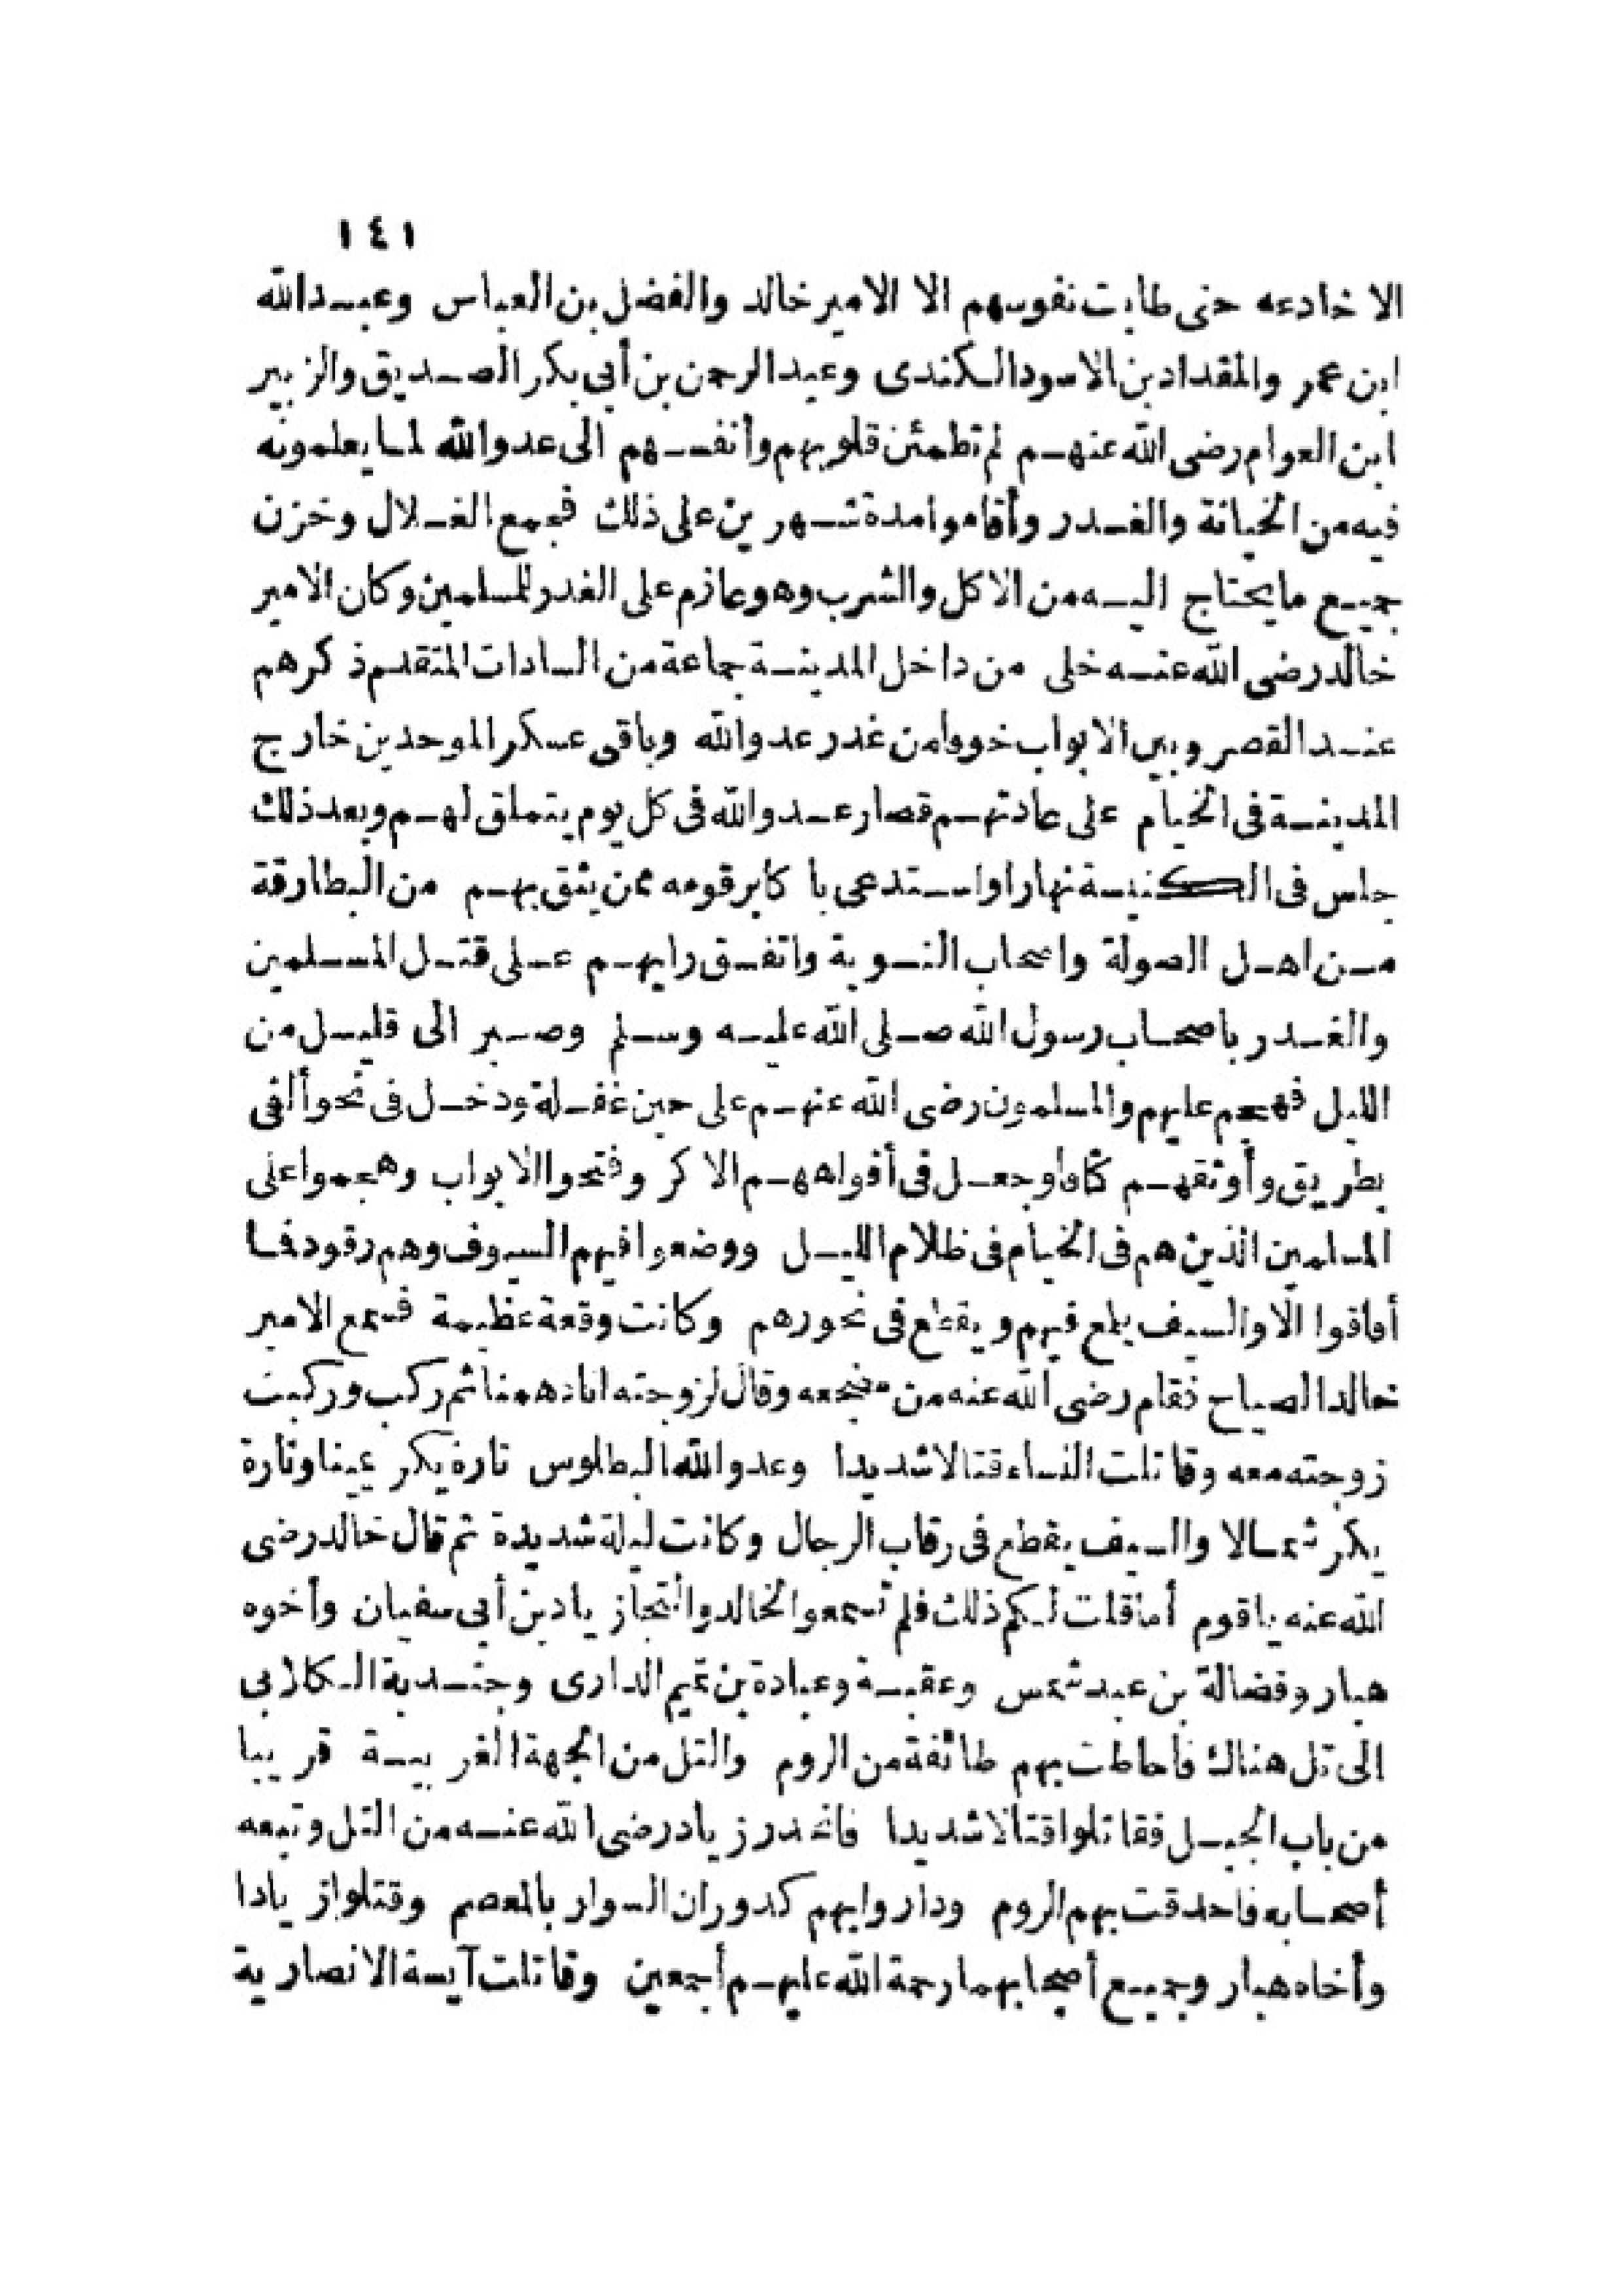 ١٤١
الا خادعه حتى طابت نفوسهم الا الامير خالد والفضل بن العباس وعبدالله
ابن عمر والمقداد بن الاسود الكندى وعبد الرحمن بن أبى بكر الصديق والزبير
ابن العوام رضى الله عنهم لم تطمئن قلوبهم وأنفسهم الى عدوالله لما يعلمونه
فيه من الخيانة والغدر وأقاموا مدة شهرين على ذلك فجمع الغلال وخزن
جميع ما يحتاج اليه من الاكل والشرب وهو عازم على الغدر للمسلمين وكان الامير
خالد رضى الله عنه خلى من داخل المدينة جماعة من السادات المتقدم ذكرهم
عند القصر وبين الابواب خوفا من غدر عدوالله وباقى عسكر الموحدين خارج
المدينة فى الخيام على عادتهم فصار عدوالله فى كل يوم يتملق لهم وبعد ذلك
جلس فى الكنيسة نهارا واستدعى باكابر قومه ممن يثق بهم من البطارقة
من اهل الصولة واصحاب النوبة واتفق رايهم على قتل المسلمين
والغدر باصحاب رسول الله صلى الله عليه وسلم وصبر الى قليل من
الليل فهجم عليهم والمسلمون رضى الله عنهم على حين غفلة ودخل فى نحو ألفى
بطريق وأوثقهم كتافا وجعل فى أفواههم الاكر وفتحوا الابواب وهجموا على
المسلمين الذين هم فى الخيام فى ظلام الليل ووضعوا فيهم السيوف وهم رقود فما
أفاقوا الا والسيف يلمع فيهم ويقطع فى نحورهم وكانت وقعة عظيمة فسمع الامير
خالد الصياح فقام رضى الله عنه من مضجعه وقال لزوجته اناد همنا ثم ركب وركبت
زوجته معه وقاتلت النساء قتالا شديدا وعدوالله البطلوس تارة يكر يمينا وتارة
يكر شمالا والسيف يقطع فى رقاب الرجال وكانت ليلة شديدة ثم قال خالد رضى
الله عنه ياقوم أما قلت لكم ذلك فلم تسمعوا لخالد وانحاز يادبن أبى سفيان وأخوه
هبار وفضالة بن عبد شمس وعقبة وعبادة بن تميم الدارى وجندبة الكلابى
الى تل هناك فأحاطت بهم طائفة من الروم والتل من الجهة الغربية قريبا
من باب الجبل فقاتلوا قتالا شديدا فانحدر زياد رضى الله عنه من التل وتبعه
أصحابه فاحدقت بهم الروم وداروا بهم كدوران السوار بالمعصم وقتلوا زيادا
وأخاه هبار وجميع أصحابهما رحمة الله عليهم أجمعين وقاتلت آيسة الانصارية